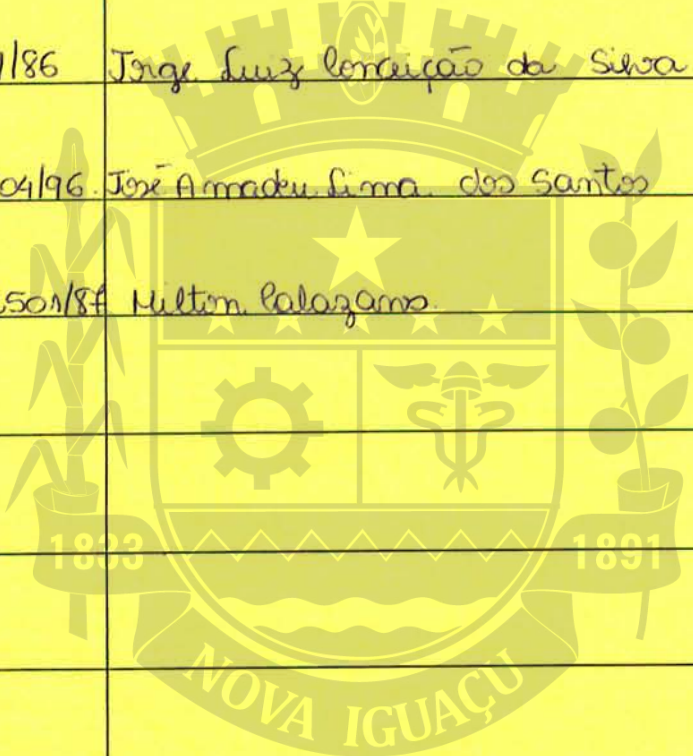 1/86 Jorge Luiz Conceição da Silva
04/96. José Amadeu Lima dos Santos
501/87 Milton Calazans.
1833 1891
NOVA IGUAÇU